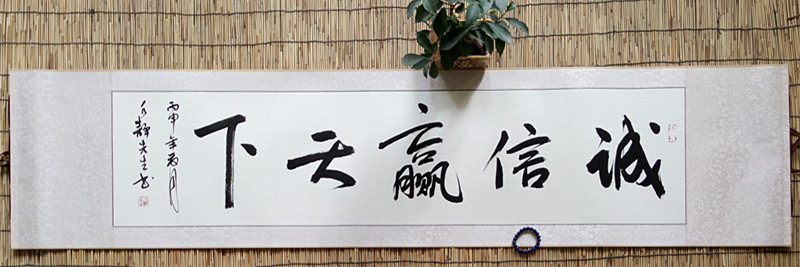 诚信赢天下
丙申年 月
静先生书